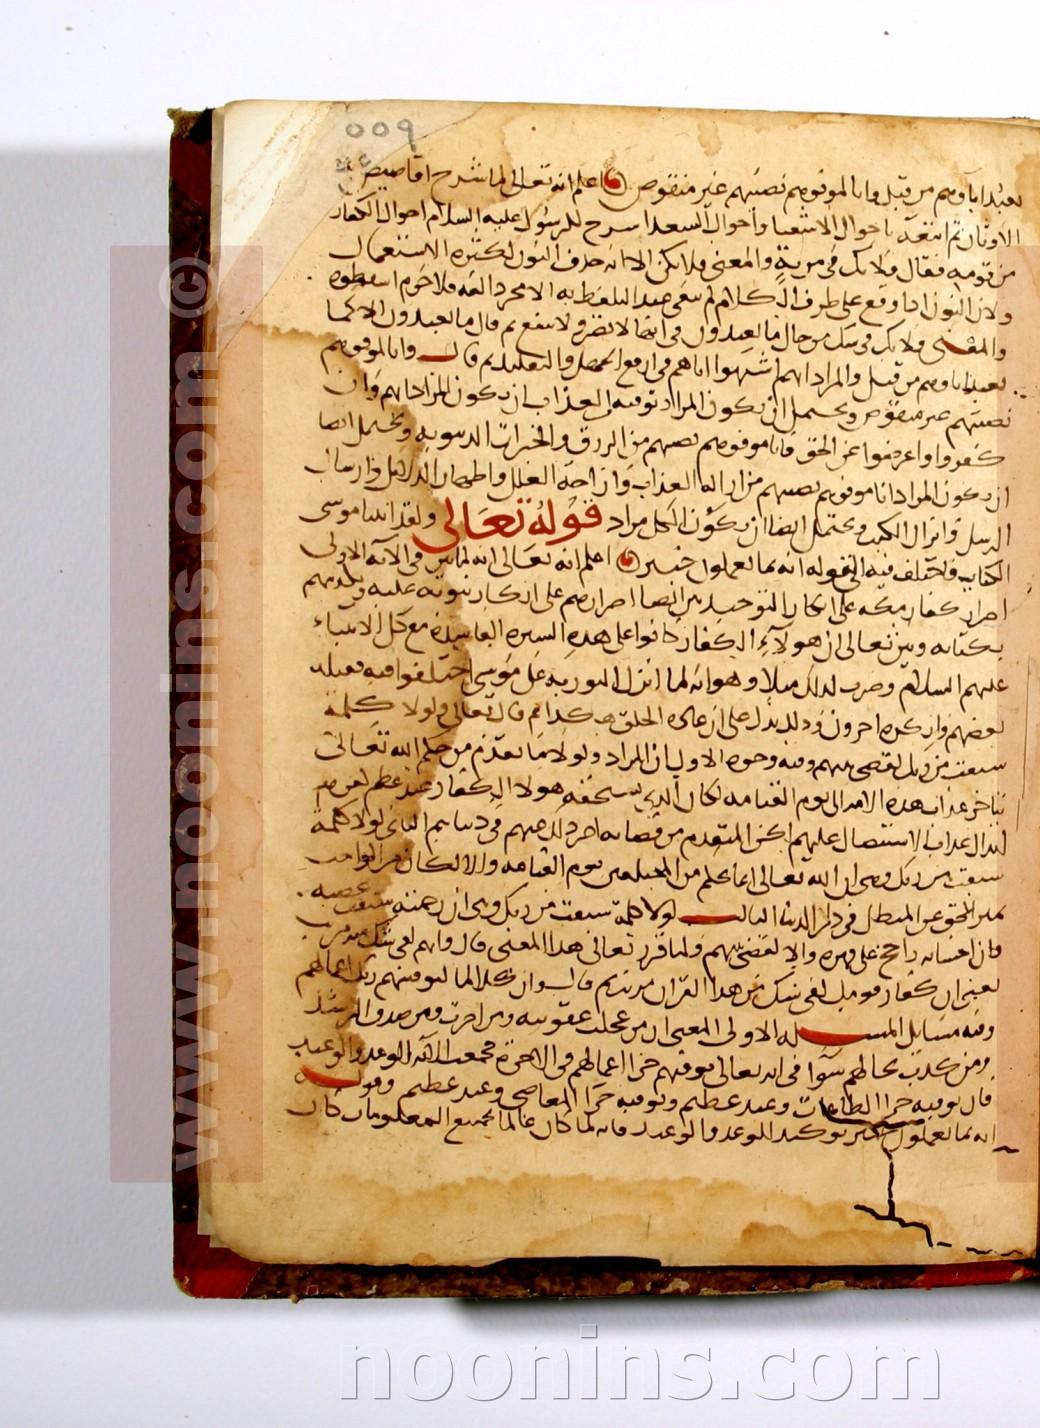 ٥٥٩
يعبد اباوهم من قبل وانا لموفوهم نصيبهم غير منقوص اعلم انه تعالى لما شرح اقاصيص
الاوثان ثم اتبعه باحوال الاشقيا واحوال السعدا شرح للرسول عليه السلام احوال الكفار
من قومه فقال فلا تك في مرية والمعنى فلا تكن الا انه حذف النون لكثرة الاستعمال
ولان النون اذا وقع على طرف الكلام لم يبق عند التلفظ به الا مجرد الغنه فلا جرم اسقطوه
والمعنى فلا تك في شك من حال ما يعبدون في انها لا تضر ولا تنفع ثم قال ما يعبدون الا كما
يعبد اباوهم من قبل والمراد انهم اشبهوا اباهم في الجهل والتقليد ثم قال وانا لموفوهم
نصيبهم غير منقوص ويحتمل ان يكون المراد توفيه العذاب ان يكون المراد انهم وان
كفروا واعرضوا عن الحق فانا موفوهم نصيبهم من الرزق والخيرات الدنيويه ويحتمل ايضا
ان يكون المراد انا موفوهم نصيبهم من ازاله العذاب وازاحة العلل واظهار الدلايل وارسال
الرسل وانزال الكتب ويحتمل ايضا ان يكون الكل مراد قوله تعالى ولقد اتينا موسى
الكتاب فاختلف فيه الى قوله انه بما يعملون خبير اعلم انه تعالى انه لما بين في الآية الاولى
اصرار كفار مكه على انكار التوحيد بين ايضا اصرارهم على انكار نبوته عليه وتكذيبهم
بكتابه وبين تعالى ان هولآء الكفار كانوا على هذه السيره الفاسدة مع كل الانبياء
عليهم السلام وضرب لذلك مثلا وهو انه لما انزل التوريه على موسى اختلفوا فيه فقبله
بعضهم وانكره اخرون وذلك يدل على ان عادة الخلق هكذا ثم قال تعالى ولولا كلمة
سبقت من ربك لقضى بينهم وفيه وجوه الاول ان المراد ولولا ما تقدم من حكم الله تعالى
بتاخير عذاب هذه الامه الى يوم القيامه لكان الذي يستحقه هولا الكفار عند عظم كفرهم
انزال عذاب الاستيصال عليهم لكن المتقدم من قضائه اخر ذلك عنهم في دنياهم الثاني لولا كلمة
سبقت من ربك وهي ان الله تعالى انما يحكم بين المختلفين يوم القيامه والا لكان من الواجب
تميز المحق عن المبطل في دار الدنيا الثالث لولا كلمة سبقت من ربك وهي ان رحمته سبقت غضبه
فان احسانه راجح على قهره والا لقضى بينهم ولما قرر تعالى هذا المعنى قال وانهم لفي شك منه مريب
يعني ان كفار قومك لفي شك من هذا القران مريب ثم قال وان كلا لما ليوفينهم ربك اعمالهم
وفيه مسايل المسله الاولى المعنى ان من عجلت عقوبته ومن اخرت ومن صدق الرسل
ومن كذب فحالهم سوا في انه تعالى يوفيهم جزا اعمالهم في الاخرة فجمعت الآيه الوعد والوعيد
فان توفيه جزا الطاعات وعد عظيم وتوفيه جزا المعاصي وعيد عظيم وقوله
انه بما يعملون خبير توكيد للوعد والوعيد فانه لما كان عالما بجميع المعلومات كان
© www.noonins.com
noonins.com